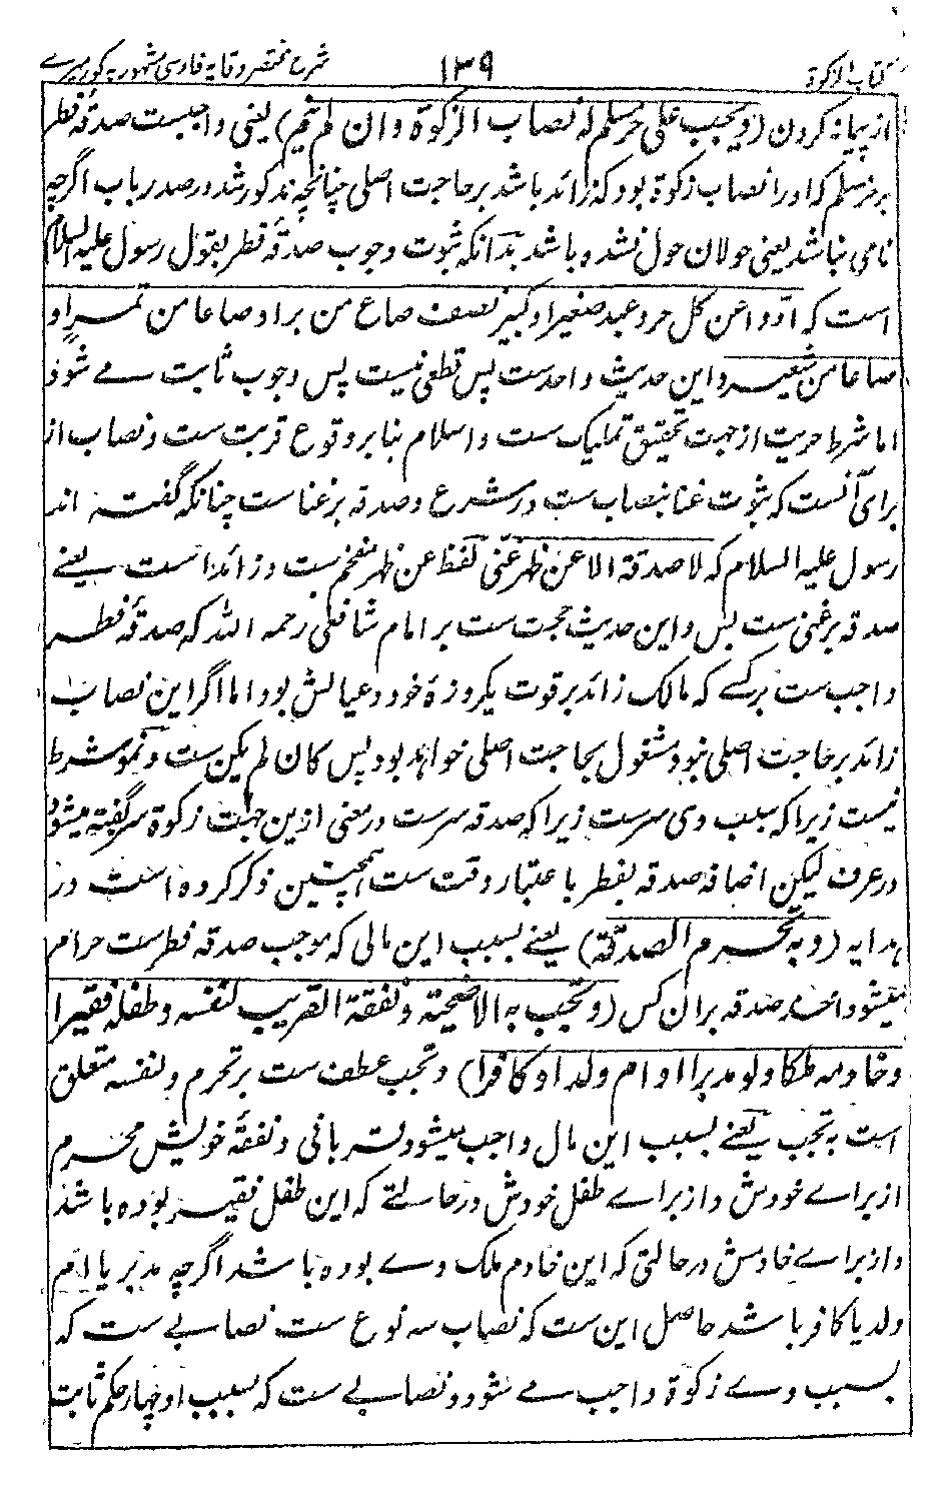 کتاب الزکوة ۱۳۹ شرح مختصر وقایه فارسی مشهور به کور میرے
از پیمانه کردن (ویجب علی حر مسلم له نصاب الزکوة وان لم ینم) یعنی واجبست صدقۂ فطر
بر حر مسلم که او را نصاب زکوة بود که زائد باشد بر حاجت اصلی چنانچه مذکور شد در صدر باب اگرچه
نامی نباشد یعنی حولان حول نشده باشد بدانکه ثبوت وجوب صدقۂ فطر بقول رسول علیه السلام
است که ادوا عن کل حر و عبد صغیر او کبیر نصف صاع من بر او صاعا من تمر او
صاعا من شعیر و این حدیث واحدست پس قطعی نیست پس وجوب ثابت مے شود
اما شرط حریت از جهت تحقیق تملیک ست و اسلام بنا بر وقوع قربت ست و نصاب از
برای آنست که ثبوت غنا بنصاب ست در شرع و صدقه بر غناست چنانکه گفته اند
رسول علیه السلام که لا صدقة الا عن ظهر غنی لفظ عن ظهر مفخم ست و زائد است یعنے
صدقه بر غنی ست بس و این حدیث حجت ست بر امام شافعی رحمه الله که صدقۂ فطر
واجب ست بر کسے که مالک زائد بر قوت یکروزۂ خود و عیالش بود اما اگر این نصاب
زائد بر حاجت اصلی نبود مشغول بحاجت اصلی خواهد بود پس کان لم یکن ست و نمو شرط
نیست زیرا که سبب وی سرست زیرا که صدقه سرست در معنی ازین جهت زکوة سر گفته میشود
در عرف لیکن اضافه صدقه بفطر باعتبار وقت ست همچنین ذکر کرده است در
هدایه (وبه تحرم الصدقة) یعنے بسبب این مالی که موجب صدقه فطرست حرام
میشود اخذ صدقه بر آن کس (وتجب به الاضحیة ونفقة القریب لنفسه وطفله فقیرا
وخادمه ملکا ولو مدبرا او ام ولد او کافرا) وتجب عطف ست بر تحرم و لنفسه متعلق
است به تجب یعنے بسبب این مال واجب میشود قربانی و نفقۂ خویش محرم
از براے خودش و از براے طفل خودش در حالتے که این طفل فقیر بوده باشد
و از براے خادمش در حالتی که این خادم ملک وے بوده باشد اگرچه مدبر یا ام
ولد یا کافر باشد حاصل این ست که نصاب سه نوع ست نصابے ست که
بسبب وے زکوة واجب مے شود و نصابے ست که بسبب او چهار حکم ثابت